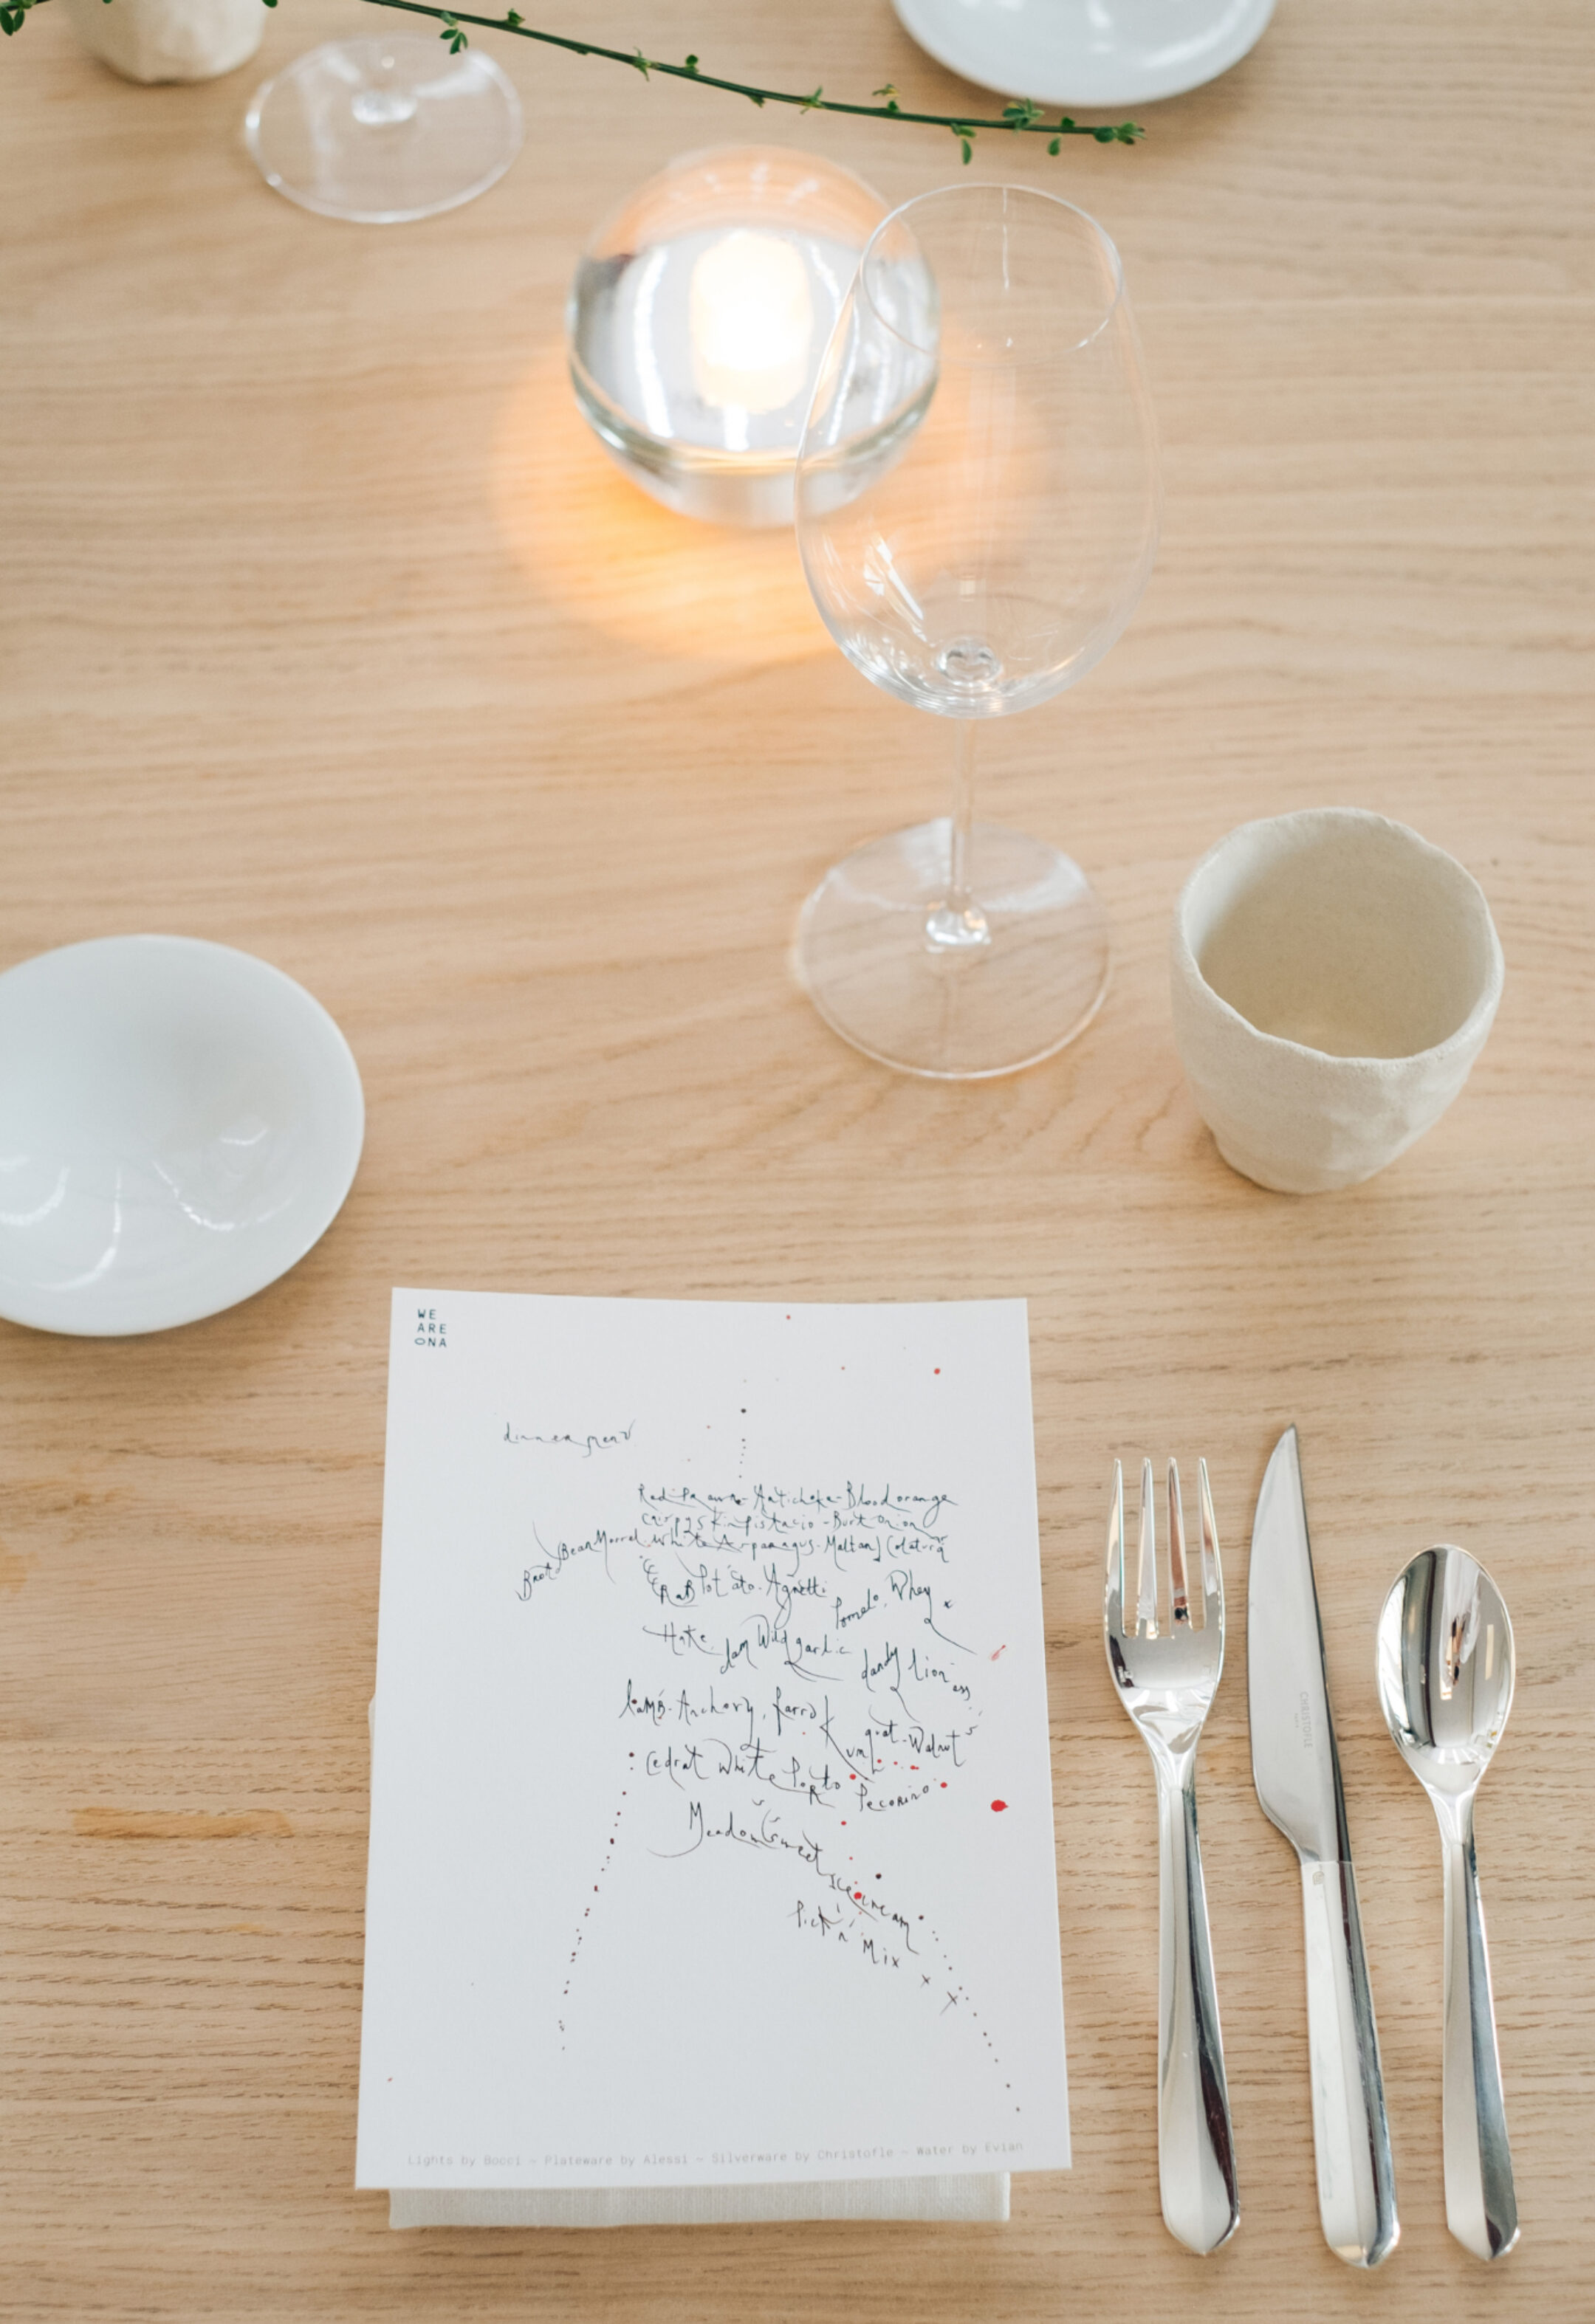 WE
ARE
ONA
dinner menu
Red Prawn - Artichoke - Blood orange
Crispy Skin Pistacio - Burt onion
Broad Bean Morrel White Asparagus - Maltan Colatura
CRaB Potato - Agnotti
Pomelo. Whey x
Hake. Jam Wild garlic
dandy lion ess
lamb - Anchovy, farro
Kumquat - Walnut s
Cedrat White Porto Pecorino
Meadowsweet icecream
Pick 'n' Mix x x
Lights by Bocci – Plateware by Alessi – Silverware by Christofle – Water by Evian
CHRISTOFLE